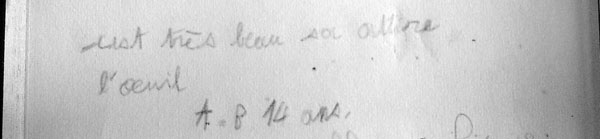 cest très beau sa attire
l'oeuil
A.B 14 ans.